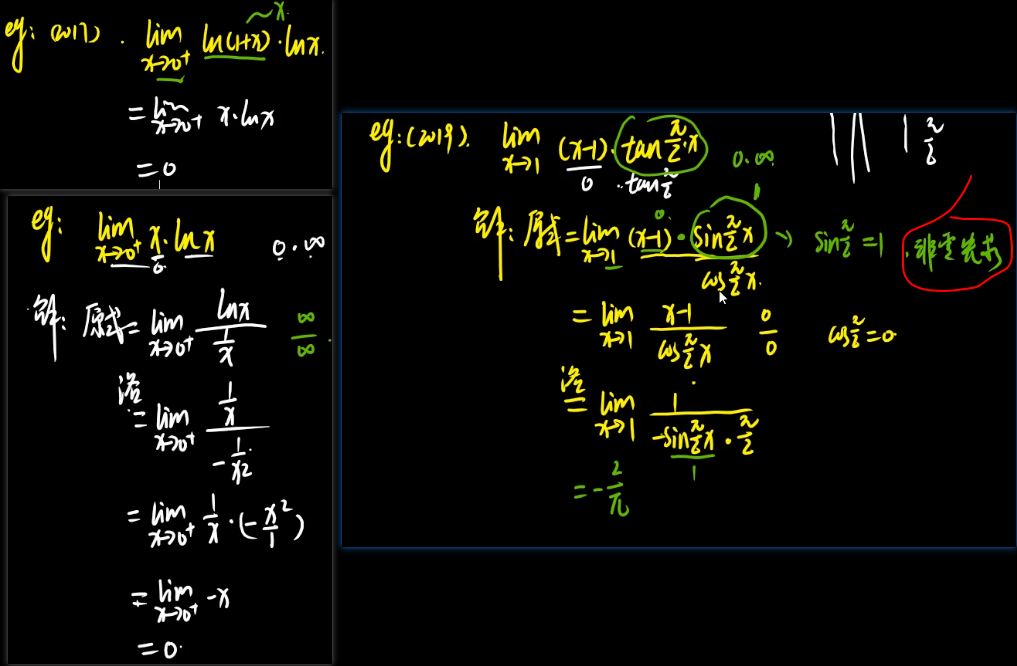 eg: (2017). lim x→0⁺ ln(1+x)·lnx. ~x.
= lim x→0⁺ x·lnx
= 0
eg: lim x→0⁺ x·lnx 0·∞
0
解: 原式= lim x→0⁺ lnx / (1/x) ∞/∞.
洛
= lim x→0⁺ (1/x) / (-1/x²)
= lim x→0⁺ 1/x·(-x²/1)
= lim x→0⁺ -x
= 0.
eg: (2019). lim x→1 (x-1)·tan π/2·x 0·∞
0 ·tan π/2
π/2
解: 原式= lim x→1 (x-1)·sin π/2 x / cos π/2 x. → sin π/2 = 1 .非零先求
0 1
= lim x→1 (x-1) / (cos π/2 x) 0/0 cos π/2 = 0
洛
= lim x→1 1 / (-sin π/2 x · π/2)
1
= -2/π